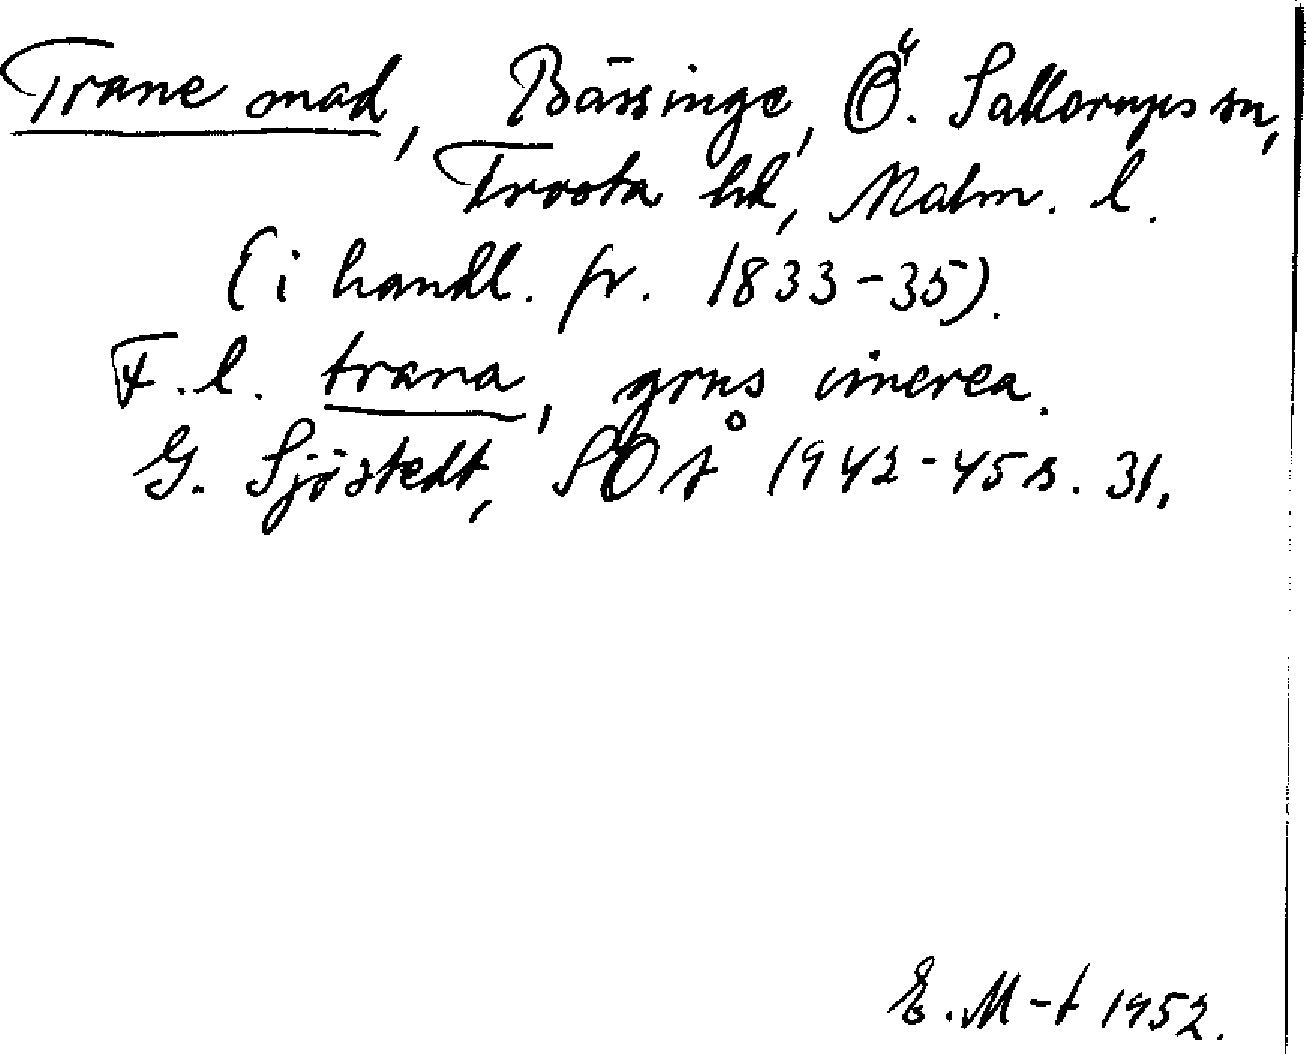 Tranemad, Bässinge, Ö. Sallerups sn,
Frosta hd, Malm. l.
(i handl. fr. 1833-35).
F. l. trana, grus cinerea.
G. Sjöstedt, SOÅ 1942-45 s. 31.
E. M-t 1952.